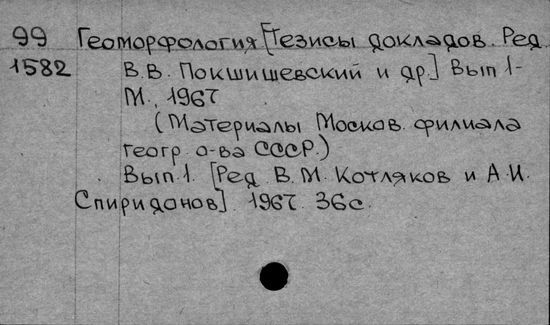 99 Геоморфология [Тезисы докладов. Ред.
1582 В.В. Покшишевский и др.] Вып 1-
М., 1967
(Материалы Москов. филиала
геогр. о-ва СССР.)
Вып.1. [Ред. В.М. Котляков и А.И.
Спиридонов]. 1967. 36с.